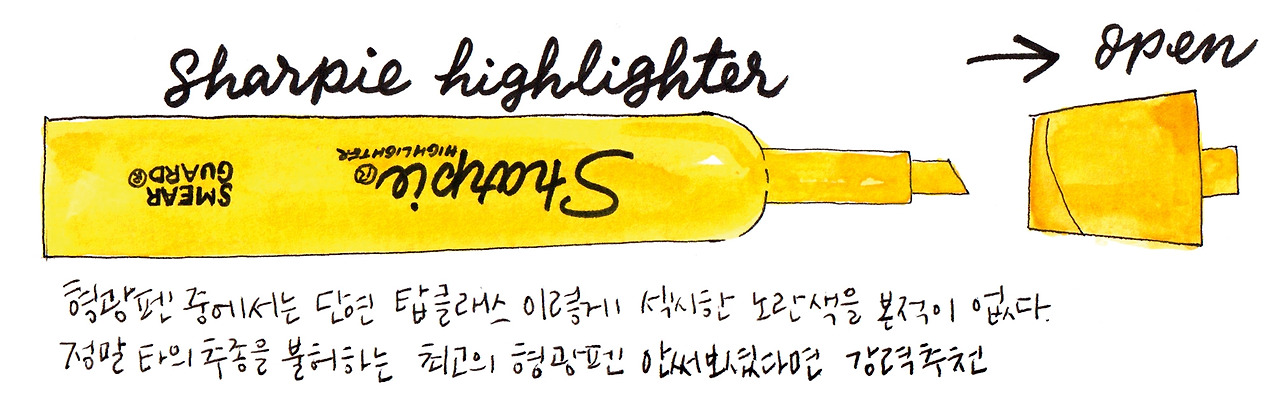 Sharpie highlighter
→ open
Sharpie®
HIGHLIGHTER
SMEAR
GUARD®
형광펜 중에서는 단연 탑클래스 이렇게 섹시한 노란색을 본적이 없다.
정말 타의 추종을 불허하는 최고의 형광펜 안써보셨다면 강력추천